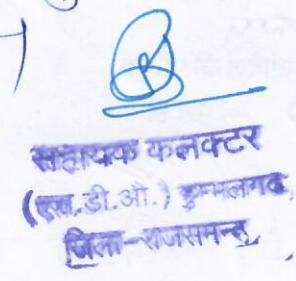 सहायक कलक्टर
(एस.डी.ओ.) कुम्भलगढ़,
जिला-राजसमन्द